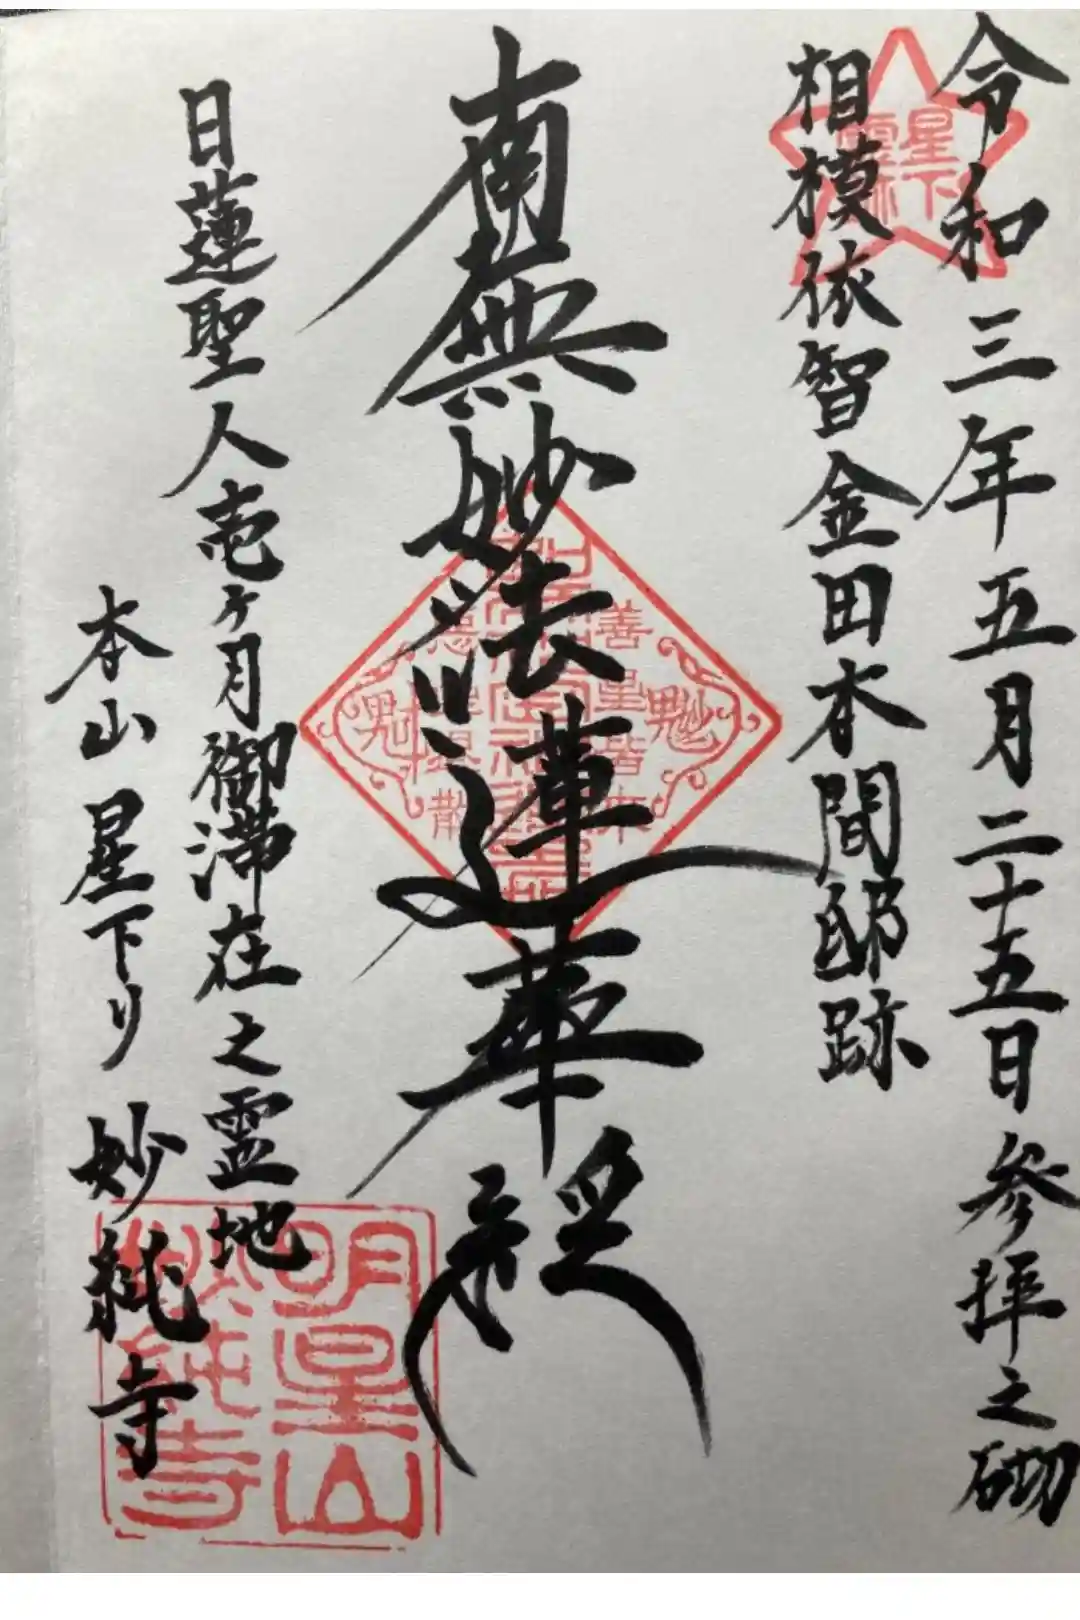 令和三年五月二十五日参拝之砌
相模依智金田本間邸跡
星下
南無妙法蓮華経
善星皆来
悪星退散
魁
魁
日蓮聖人壱ヶ月御滞在之霊地
本山星下り妙純寺
明星山
妙純寺